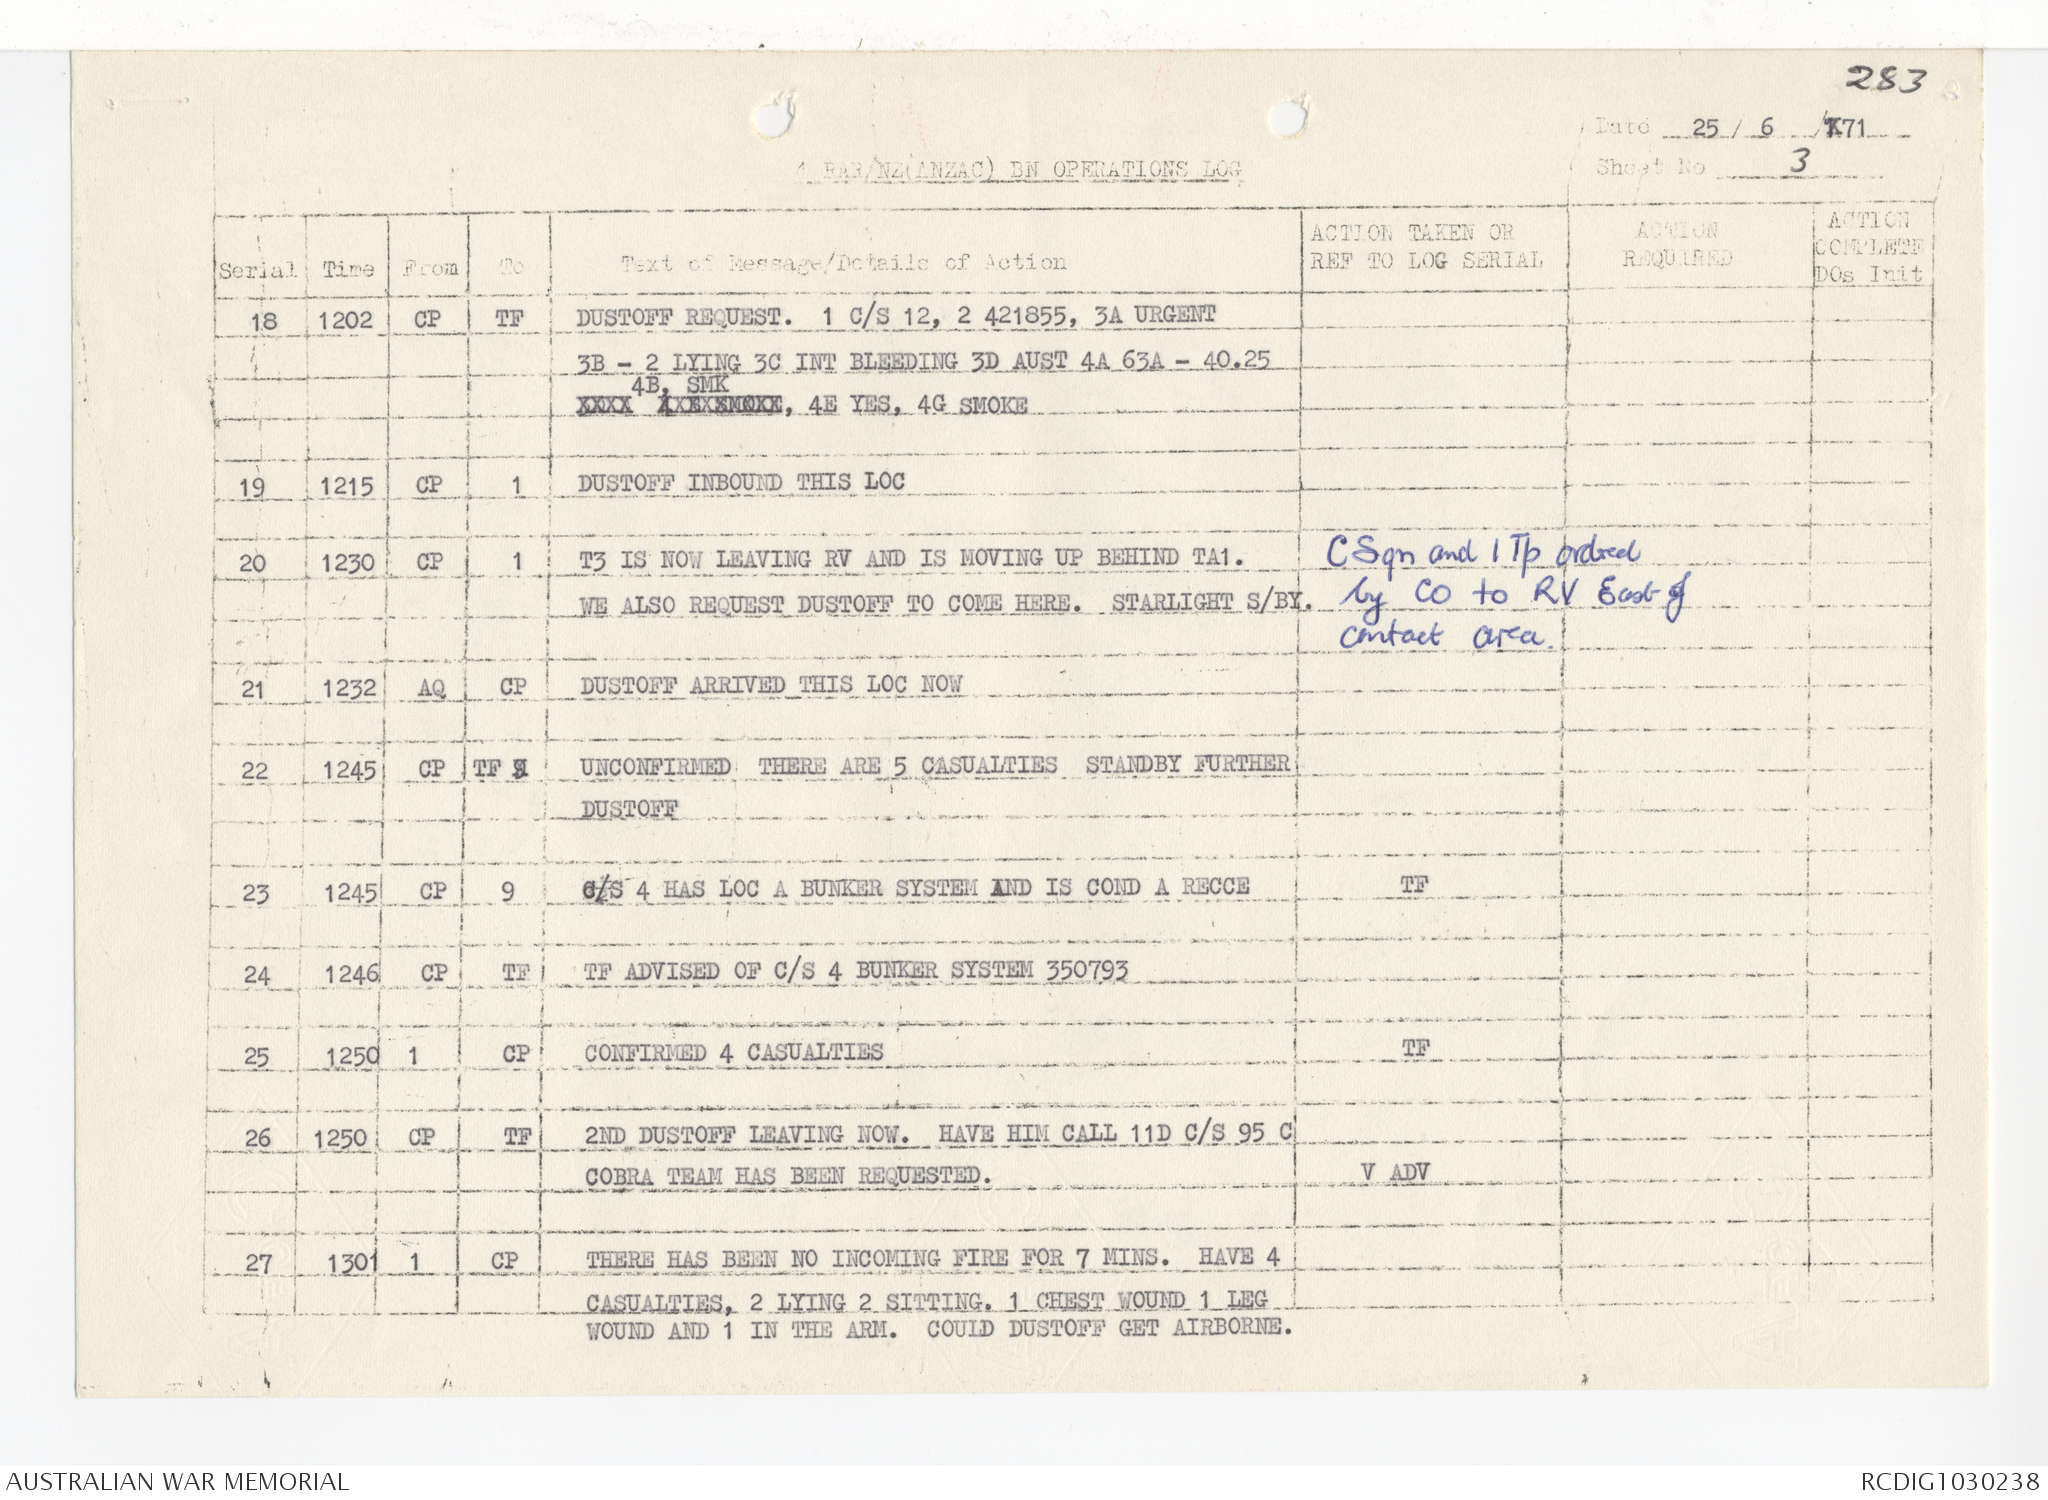 283
Date 25 / 6 / 71
Sheet No 3
4 RAR/NZ(ANZAC) BN OPERATIONS LOG
Serial Time From To Text of Message/Details of Action ACTION TAKEN OR REF TO LOG SERIAL ACTION REQUIRED ACTION COMPLETE DOs Init
18 1202 CP TF DUSTOFF REQUEST. 1 C/S 12, 2 421855, 3A URGENT
3B - 2 LYING 3C INT BLEEDING 3D AUST 4A 63A - 40.25
4B, SMK
XXXX XXXXSMOKE, 4E YES, 4G SMOKE
19 1215 CP 1 DUSTOFF INBOUND THIS LOC
20 1230 CP 1 T3 IS NOW LEAVING RV AND IS MOVING UP BEHIND TA1. C Sqn and 1 Tp ordred
WE ALSO REQUEST DUSTOFF TO COME HERE. STARLIGHT S/BY. by CO to RV East of
contact area.
21 1232 AQ CP DUSTOFF ARRIVED THIS LOC NOW
22 1245 CP TF UNCONFIRMED THERE ARE 5 CASUALTIES STANDBY FURTHER
DUSTOFF
23 1245 CP 9 C/S 4 HAS LOC A BUNKER SYSTEM AND IS COND A RECCE TF
24 1246 CP TF TF ADVISED OF C/S 4 BUNKER SYSTEM 350793
25 1250 1 CP CONFIRMED 4 CASUALTIES TF
26 1250 CP TF 2ND DUSTOFF LEAVING NOW. HAVE HIM CALL 11D C/S 95 C
COBRA TEAM HAS BEEN REQUESTED. V ADV
27 1301 1 CP THERE HAS BEEN NO INCOMING FIRE FOR 7 MINS. HAVE 4
CASUALTIES, 2 LYING 2 SITTING. 1 CHEST WOUND 1 LEG
WOUND AND 1 IN THE ARM. COULD DUSTOFF GET AIRBORNE.
AUSTRALIAN WAR MEMORIAL RCDIG1030238